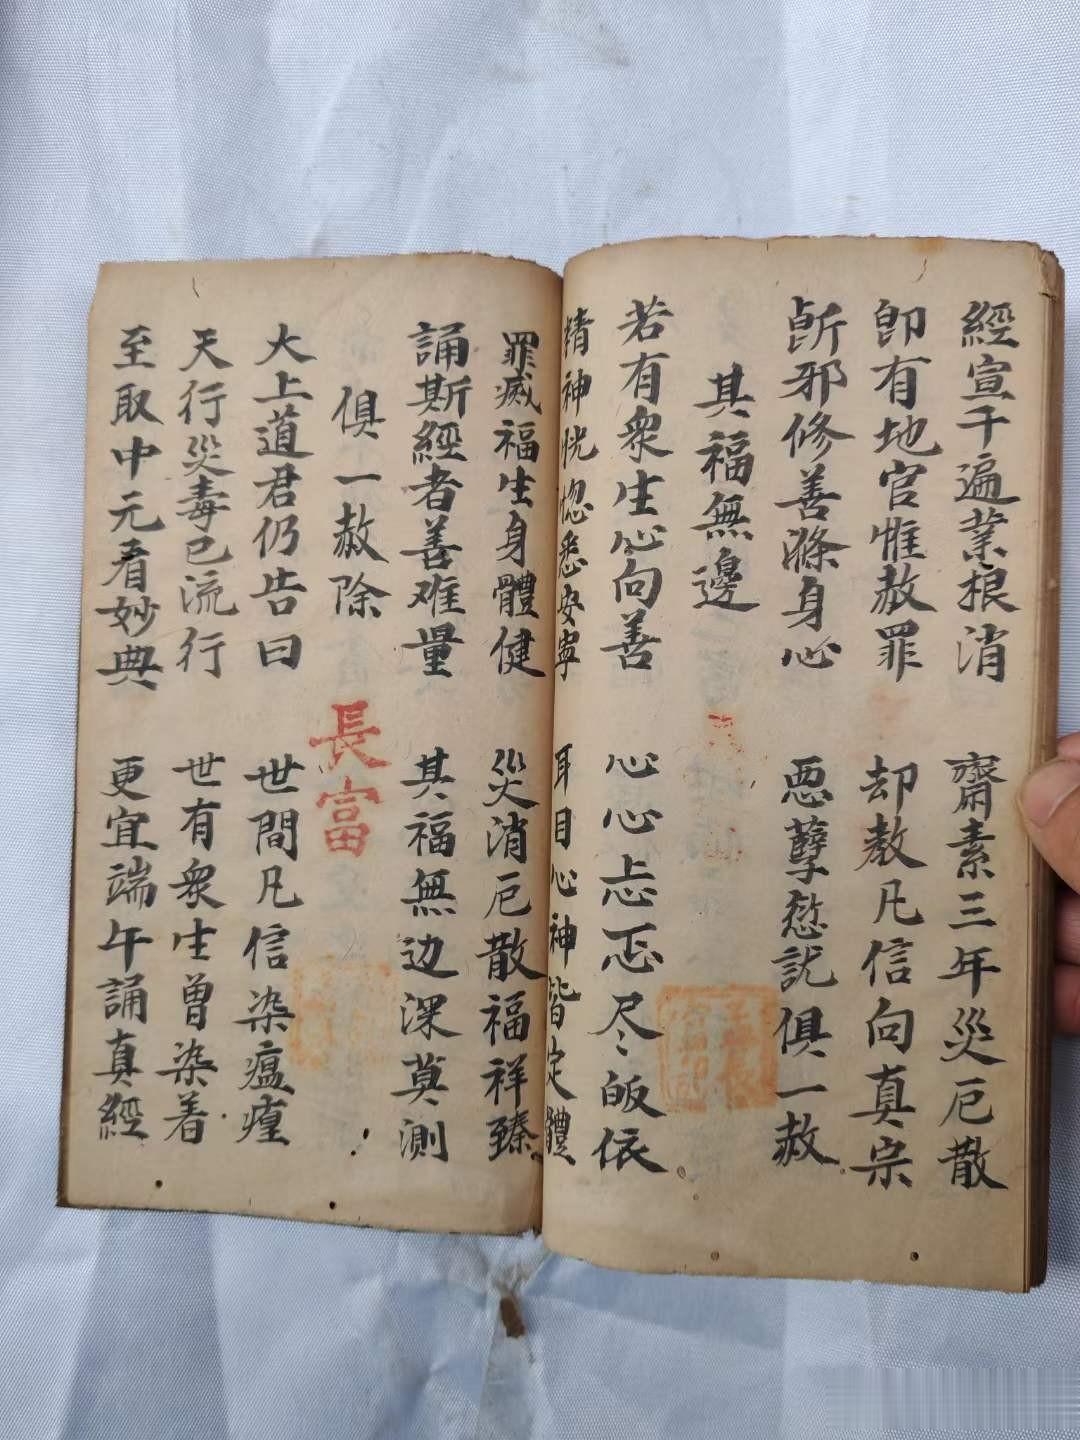 經宣千遍業根消　齋素三年災厄散
即有地官惟赦罪　却教凡信向真宗
斷邪修善滌身心　惡孽愆訧俱一赦
其福無邊
若有眾生心向善　心心忐忑尽皈依
精神恍惚悉安寧　耳目心神皆定體
罪滅福生身體健　災消厄散福祥臻
誦斯經者善难量　其福無边深莫測
俱一赦除
長富
大上道君仍告曰　世間凡信染瘟㾮
天行災毒已流行　世有衆生曾染着
至取中元看妙典　更宜端午誦真經